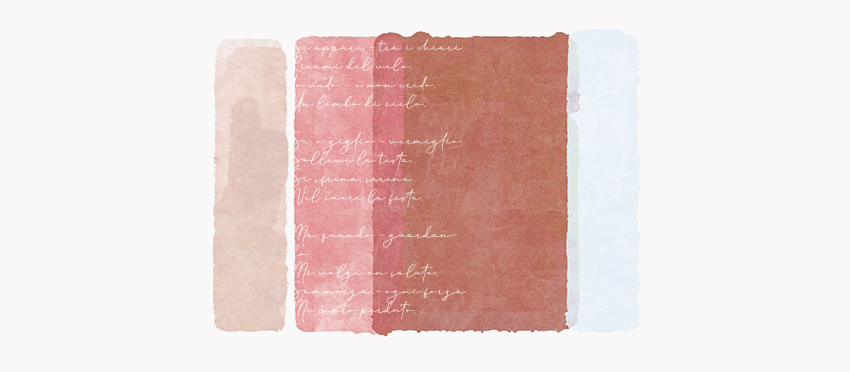 Se appari, - tra i chiari
Ricami del velo,
Io vedo - e non credo,
Un limbo di cielo.
Se, o giglio - vermiglio,
Sollevi la testa,
Si sfrena, serena
Nel cuore la festa.
Ma, quando - guardan-
do
Mi volgi un saluto,
Sammorza, - ogne forza
Mi resto perduto,